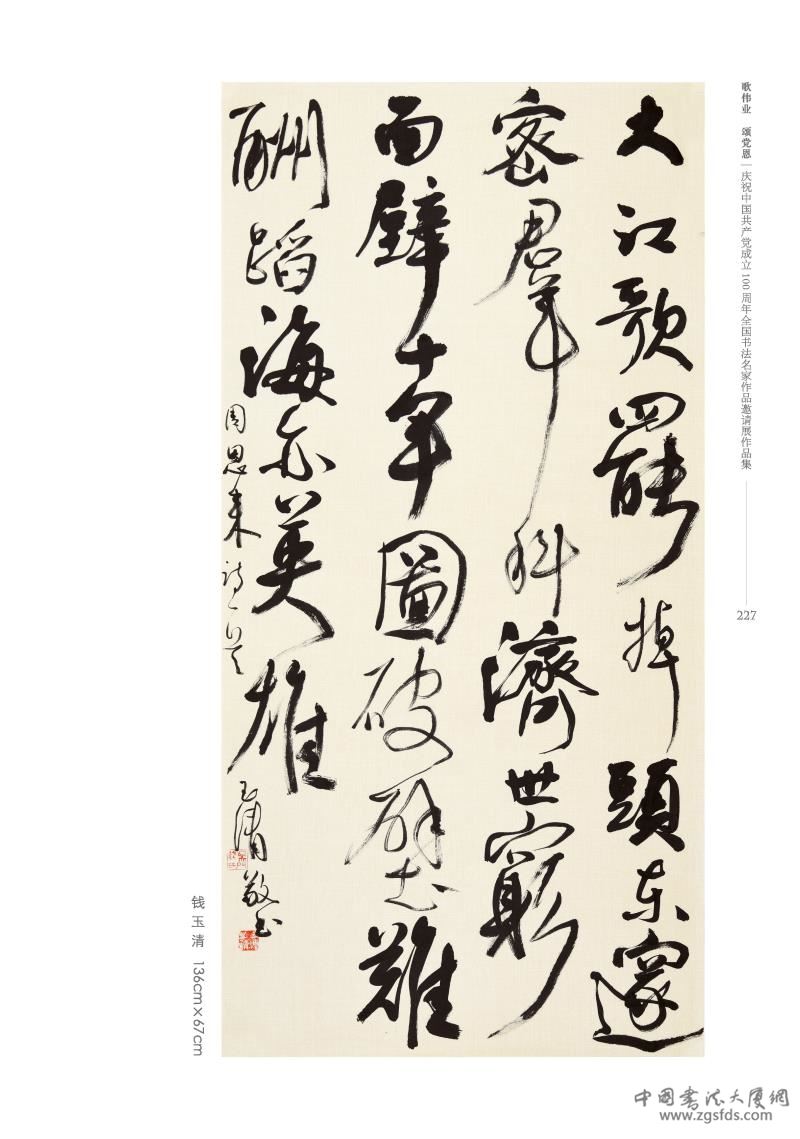 歌伟业 颂党恩|庆祝中国共产党成立100周年全国书法名家作品邀请展作品集
227
大江歌罷掉頭東邃
密群科濟世窮
面壁十年圖破壁難
酬蹈海亦英雄
周恩来诗一首
玉清敬书
钱玉清 136cm×67cm
中國書法大廈網
www.zgsfds.com